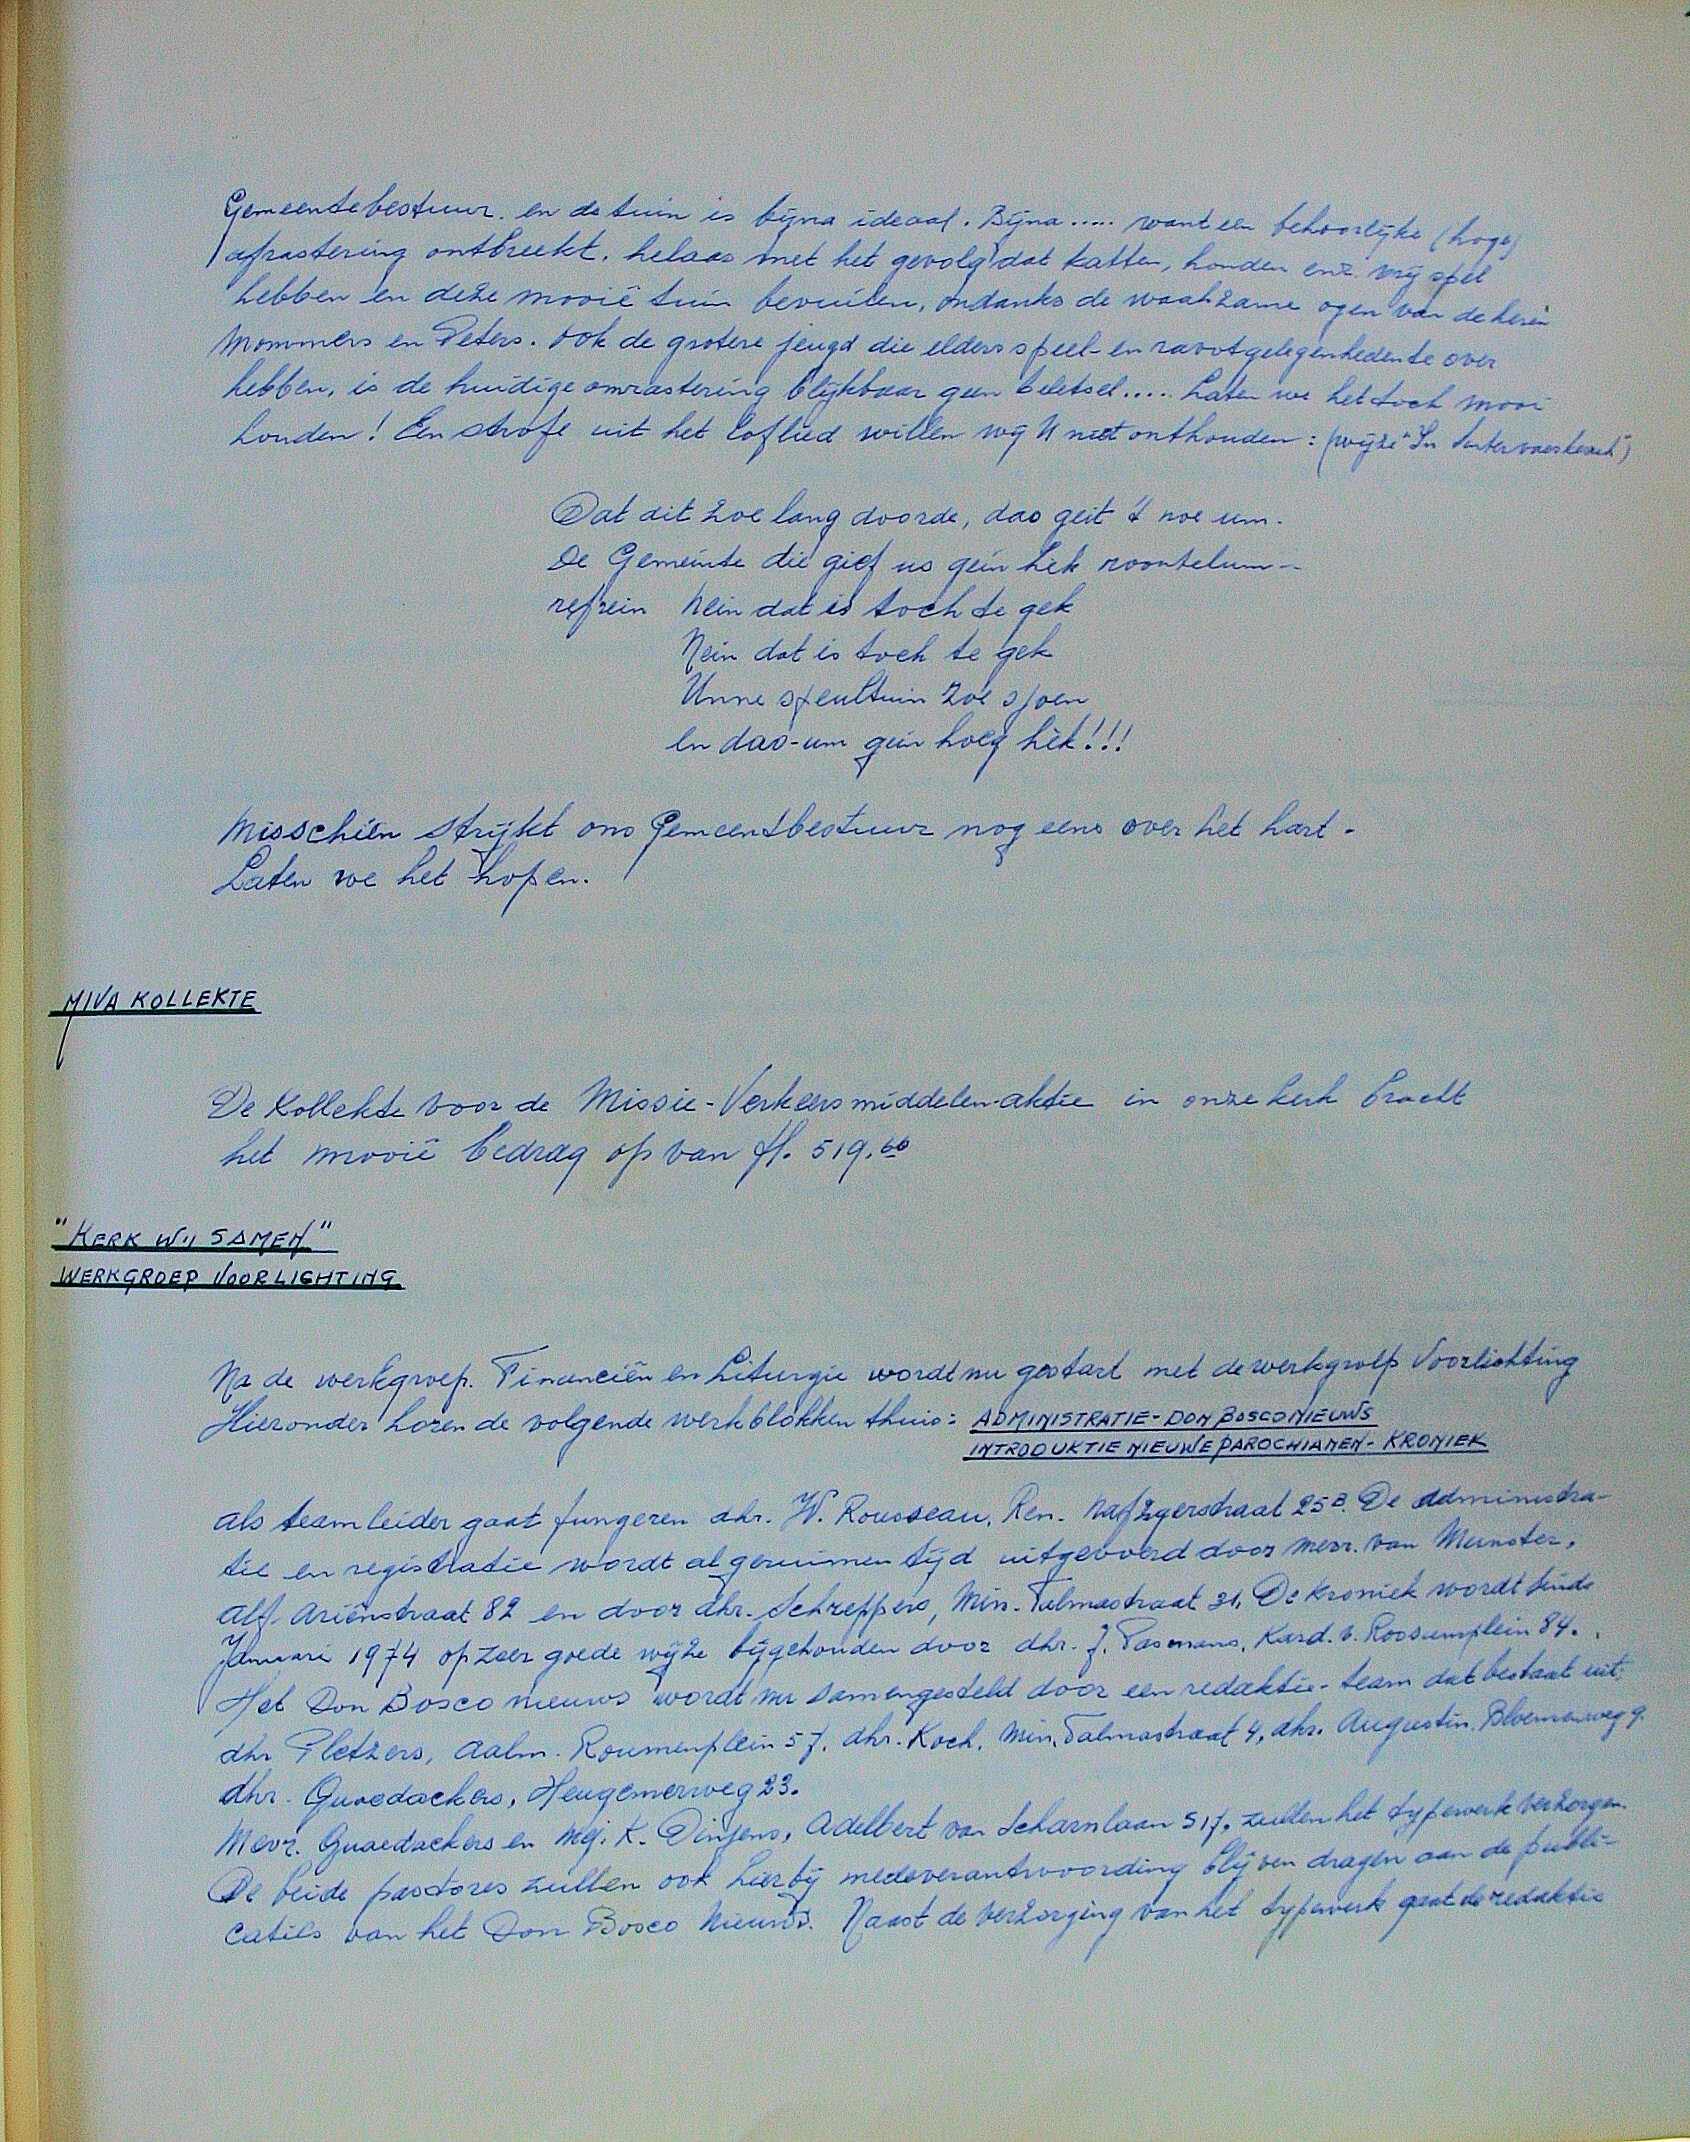 Gemeentebestuur. en de tuin is bijna ideaal. Bijna ..... want een behoorlijke (hoge)
afrastering ontbreekt. helaas met het gevolg dat katten, honden enz. vrij spel
hebben en deze mooie tuin bevuilen, ondanks de waakzame ogen van de heren
Mommers en Peters. Ook de grotere jeugd die elders speel- en ravotgelegenheden te over
hebben, is de huidige omrastering blijkbaar geen beletsel ..... Laten we het toch mooi
houden! Een strofe uit het loflied willen wij U niet onthouden: (wijze "In
Dat dit zoe lang doorde, dao geit 't noe um.
De Gemeinte die gief us gein hek roontelum --
refrein Nein dat is toch te gek
Nein dat is toch te gek
Unne speultuin zoe sjoen
En dao-um gein hoeg hèk!!!
Misschien strijkt ons Gemeentbestuur nog eens over het hart.
Laten we het hopen.
MIVA KOLLEKTE
De Kollekte voor de Missie-Verkeersmiddelen-aktie in onze kerk bracht
het mooie bedrag op van fl. 519.60
"KERK WIJ SAMEN"
WERKGROEP VOORLICHTING
Na de werkgroep. Financiën en Liturgie wordt nu gestart met de werkgroep Voorlichting
Hieronder horen de volgende werkblokken thuis: ADMINISTRATIE - DON BOSCO NIEUWS
INTRODUKTIE NIEUWE PAROCHIANEN - KRONIEK
als teamleider gaat fungeren dhr. W. Rousseau, Ren. Nafzgerstraat 25B. De administra-
tie en registratie wordt al geruimen tijd uitgevoerd door mevr. van Munster,
Alf. Ariënstraat 82 en door dhr. Schreppers, Min. Talmastraat 31. De Kroniek wordt sinds
Januari 1974 op zeer goede wijze bijgehouden door dhr. J. Pasmans, Kard. v. Rossumplein 84.
Het Don Bosco nieuws wordt nu samengesteld door een redaktie-team dat bestaat uit:
dhr Pletzers, Aalm. Roumenplein 57, dhr. Koch, Min. Talmastraat 4, dhr. Augustin, Bloemenweg 9.
dhr. Quaedackers, Heugemerweg 23.
Mevr. Quaedackers en Mej. K. Dinjens, Adelbert van Scharnlaan 517, zullen het typewerk verzorgen.
De beide pastores zullen ook hierbij medeverantwoording blijven dragen aan de publi-
caties van het Don Bosco Nieuws. Naast de verzorging van het typewerk gaat de redaktie